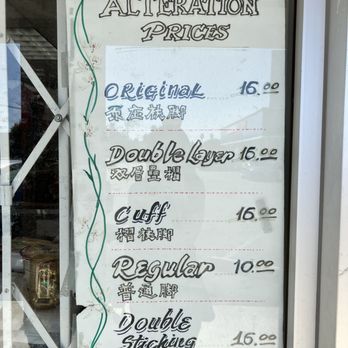 ALTERATION
PRICES
ORiGiNAL 16.00
原庄梳脚
Double Layer 16.00
双層叠褶
Cuff 16.00
褶梳脚
Regular 10.00
普通脚
Double
Stiching 15.00